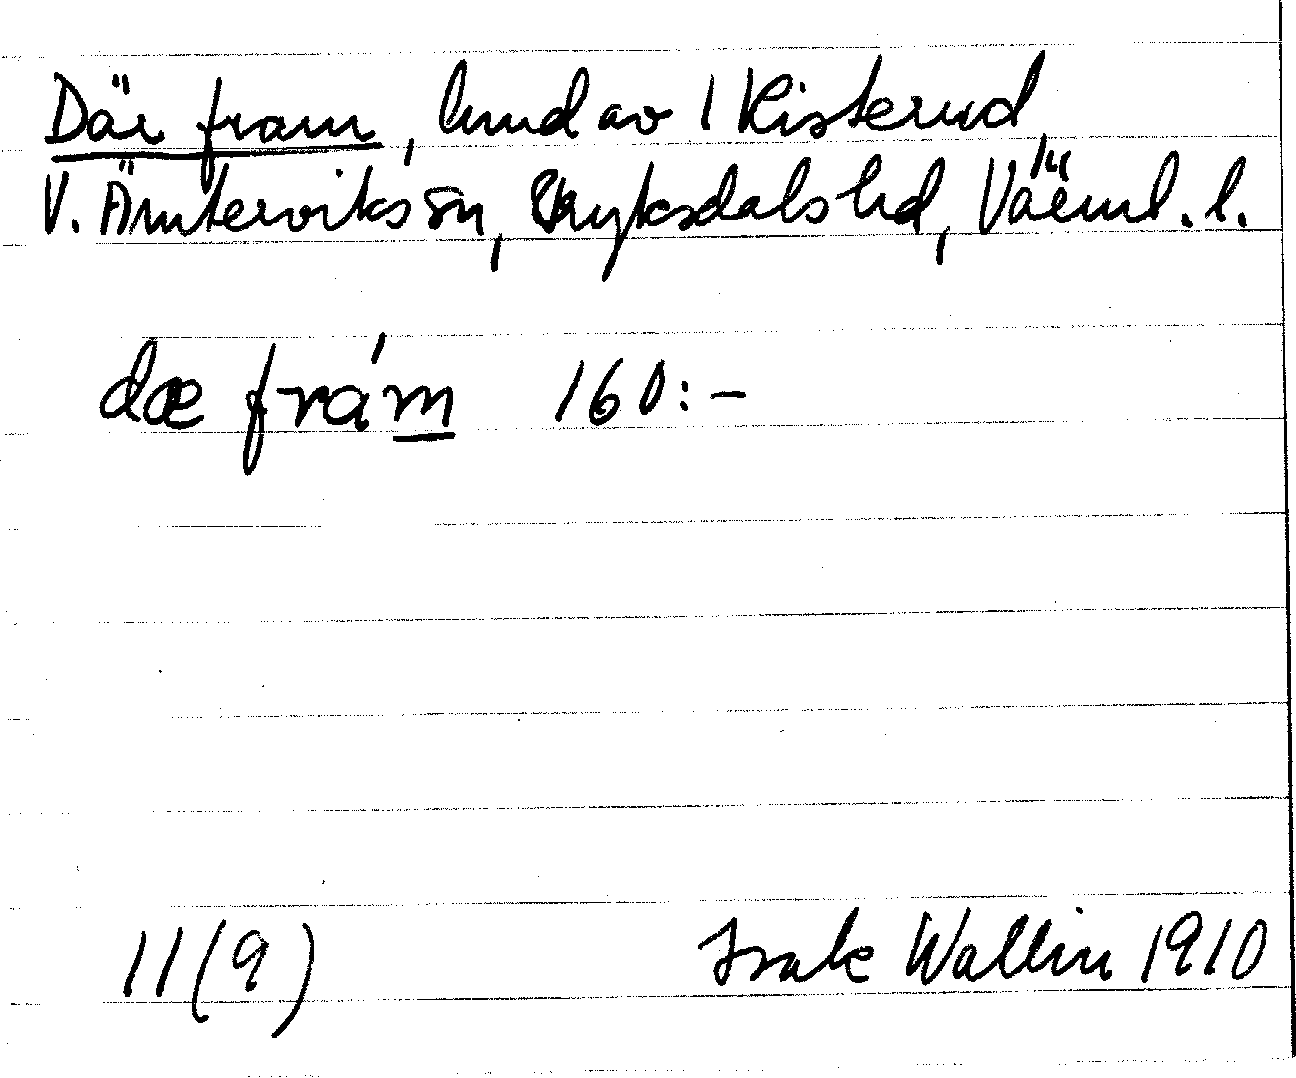 Där fram, hmd av 1 Risterud
V. Ämterviks sn, Fryksdals hd, Värml. l.
dæ frá'm 160:-
11(9) Isak Wallin 1910